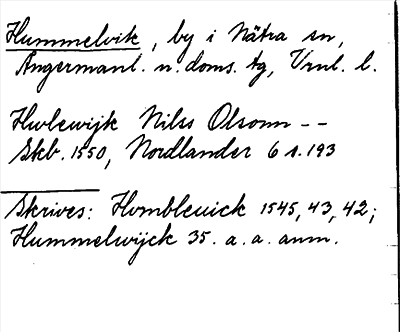 Hummelvik, by i Nätra sn,
Ångermanl. n. doms. tg, Vrnl. l.
Hvlewijk Nilss Olsonn --
Skb. 1550, Nordlander 6 s. 193
Skrives: Hvmbleuick 1545, 43, 42;
Hummelwijck 35. a. a. anm.